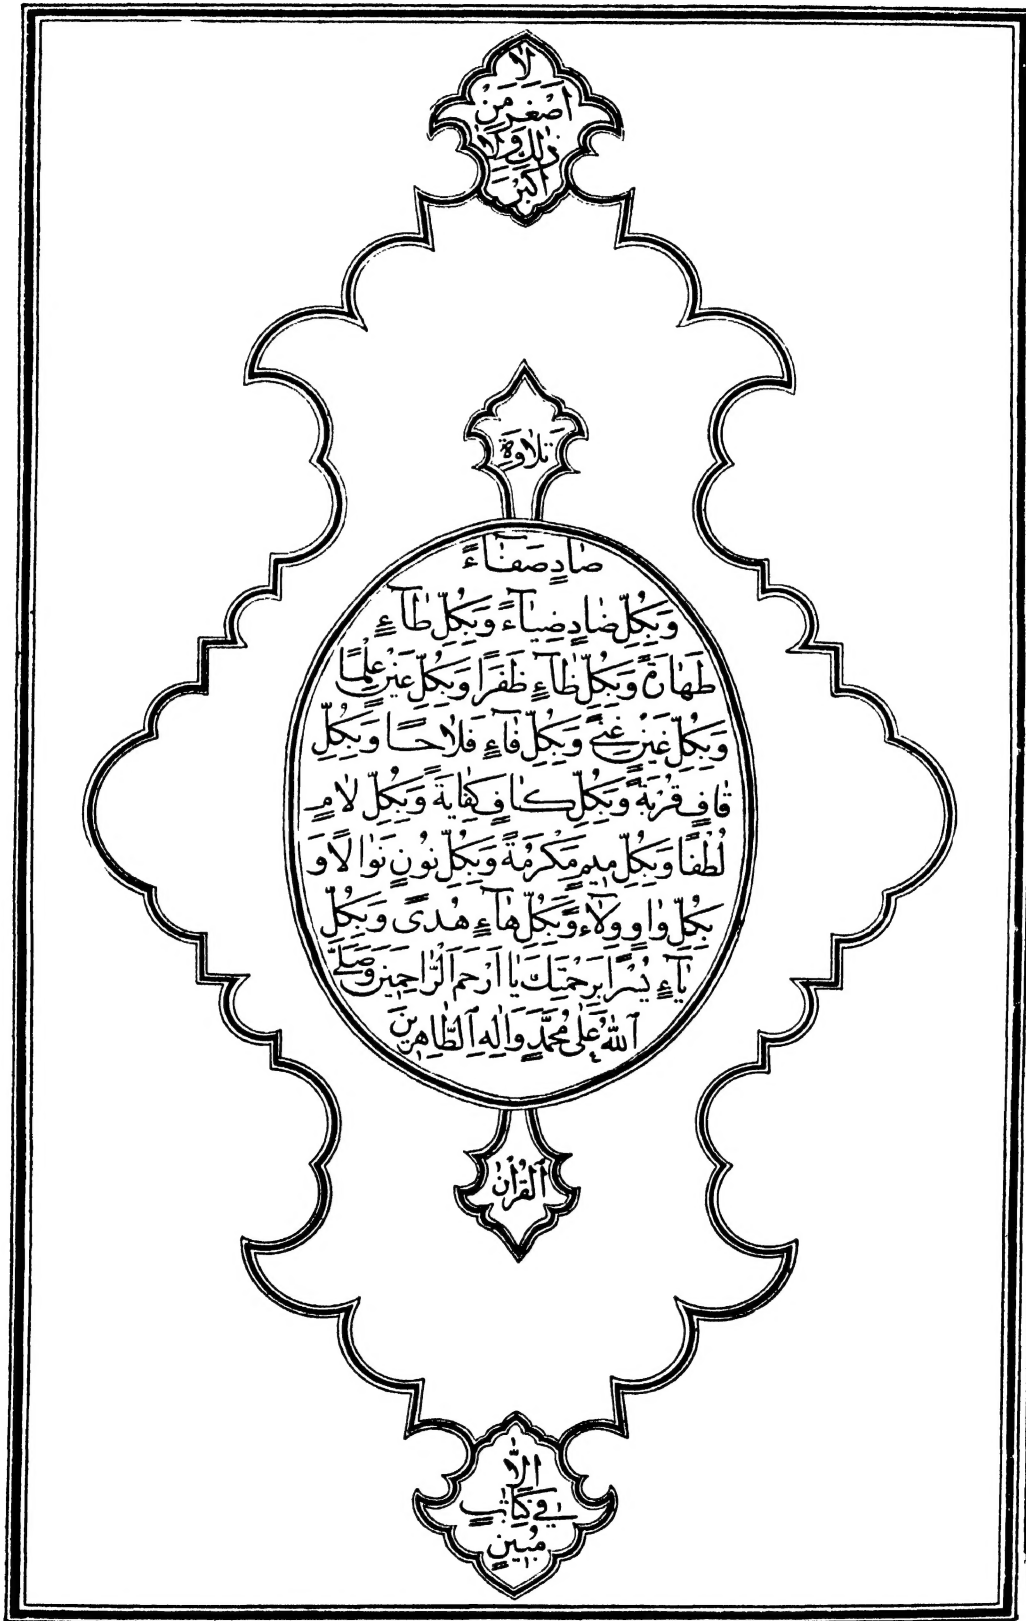 لَا
أَصْغَرَ مِنْ
ذٰلِكَ وَلَا
أَكْبَرَ
تِلَاوَةِ
صَادٍ صَفَآءً
وَبِكُلِّ ضَادٍ ضِيَآءً وَبِكُلِّ طَآءٍ
طَهَارَةً وَبِكُلِّ ظَآءٍ ظَفَرًا وَبِكُلِّ عَيْنٍ عِلْمًا
وَبِكُلِّ غَيْنٍ غِنىً وَبِكُلِّ فَآءٍ فَلَاحًا وَبِكُلِّ
قَافٍ قُرْبَةً وَبِكُلِّ كَافٍ كِفَايَةً وَبِكُلِّ لَامٍ
لُطْفًا وَبِكُلِّ مِيمٍ مَكْرَمَةً وَبِكُلِّ نُونٍ نَوَالًا وَ
بِكُلِّ وَاوٍ وِلَآءً وَبِكُلِّ هَآءٍ هُدىً وَبِكُلِّ
يَآءٍ يُسْرًا بِرَحْمَتِكَ يَا أَرْحَمَ ٱلرَّاحِمِينَ وَصَلَّى
ٱللّٰهُ عَلٰى مُحَمَّدٍ وَاٰلِهِ ٱلطَّاهِرِينَ
ٱلْقُرْاٰنِ
إِلَّا
فِي كِتَابٍ
مُبِينٍ